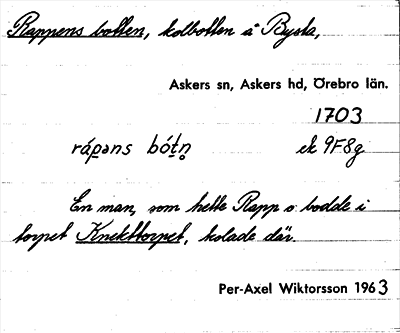 Rappens botten, kolbotten å Bysta,
Askers sn, Askers hd, Örebro län.
1703
rápəns bótn̥ ek 9F8g
En man, som hette Rapp o bodde i
torpet Knekttorpet, kolade där.
Per-Axel Wiktorsson 1963